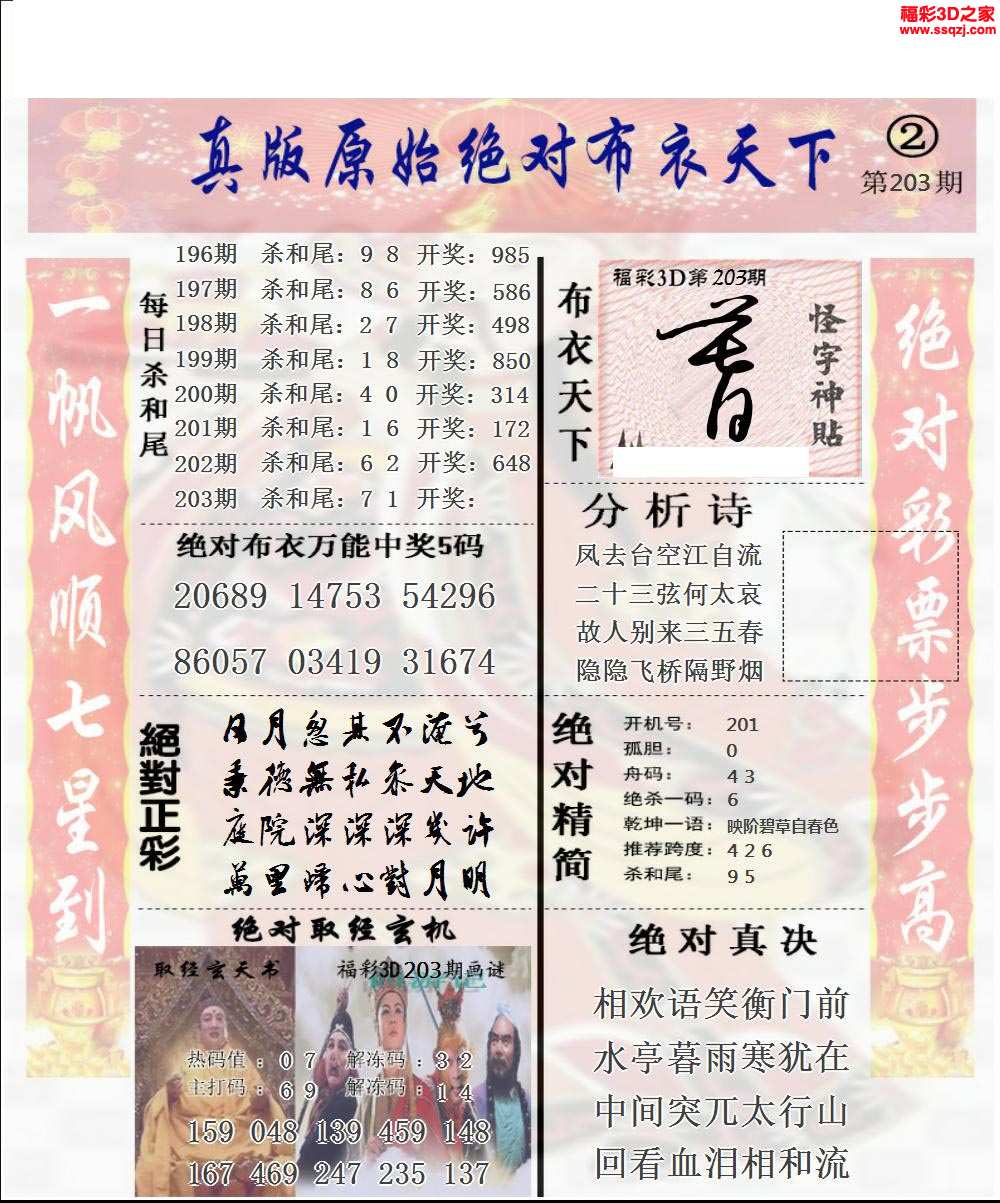 福彩3D之家
www.ssqzj.com
真版原始绝对布衣天下
②
第203期
一帆风顺七星到
每日杀和尾
196期 杀和尾：9 8 开奖：985
197期 杀和尾：8 6 开奖：586
198期 杀和尾：2 7 开奖：498
199期 杀和尾：1 8 开奖：850
200期 杀和尾：4 0 开奖：314
201期 杀和尾：1 6 开奖：172
202期 杀和尾：6 2 开奖：648
203期 杀和尾：7 1 开奖：
绝对布衣万能中奖5码
20689 14753 54296
86057 03419 31674
絕對正彩
日月忽其不淹兮
秉德無私参天地
庭院深深深幾许
萬里歸心對月明
绝对取经玄机
取经玄天书
福彩3D203期画谜
热码值：0 7 解冻码：3 2
主打码：6 9 解冻码：1 4
159 048 139 459 148
167 469 247 235 137
布衣天下
福彩3D第203期
怪字神貼
分析诗
凤去台空江自流
二十三弦何太哀
故人别来三五春
隐隐飞桥隔野烟
绝对精简
开机号：201
孤胆：0
舟码：4 3
绝杀一码：6
乾坤一语：映阶碧草自春色
推荐跨度：4 2 6
杀和尾：9 5
绝对真决
相欢语笑衡门前
水亭暮雨寒犹在
中间突兀太行山
回看血泪相和流
绝对彩票步步高